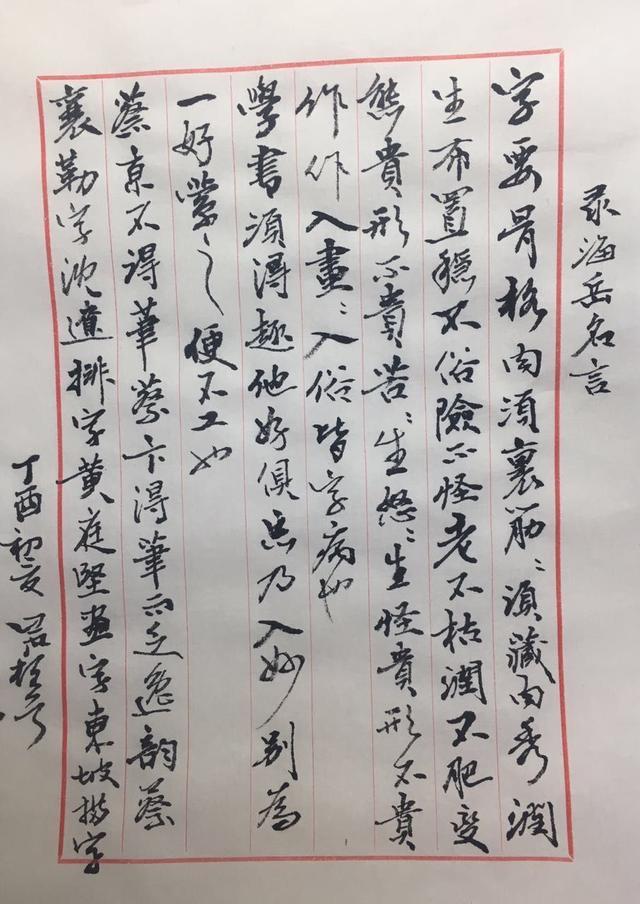 录海岳名言
字要骨格肉须裹筋〻须藏肉秀润
生布置稳不俗险不怪老不枯润不肥变
态贵形不贵苦〻生怒〻生怪贵形不贵
作作入画〻入俗皆字病也
學書须得趣他好俱忘乃入妙别為
一好縈之便不工也
蔡京不得筆蔡卞得筆而乏逸韵蔡
襄勒字沈遼排字黄庭堅畫字東坡描字
丁酉初夏